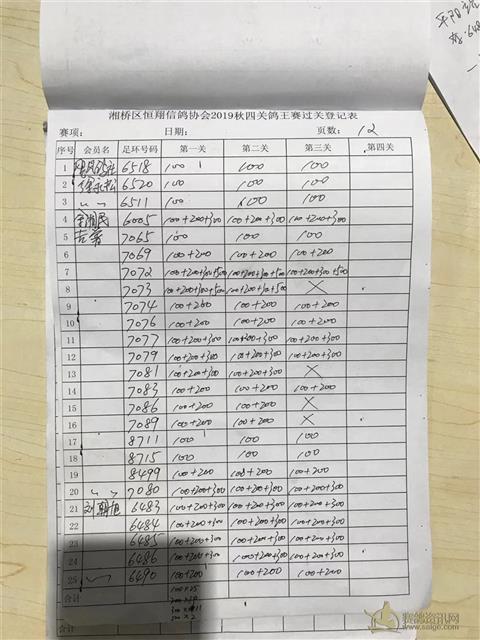 湘桥区恒翔信鸽协会2019秋四关鸽王赛过关登记表
赛项: 日期: 页数: 12
序号 会员名 足环号码 第一关 第二关 第三关 第四关
1 6518 100 100 100
2 6520 100 100 100
3 〃 〃 6511 100 100 100
4 6005 100+200+300 100+200+300 100+200+300
5 7065 100 100 100
6 7069 100+200 100+200 100+200
7 7072 100+200+300+500 100+200+300+500 100+200+300+500
8 7073 100+200+300+500 100+200+300+500 ×
9 7074 100+200 100+200 100+200
10 7076 100+200 100+200 100+200
11 7077 100+200+300 100+200+300 100+200+300
12 7079 100+200+300 100+200+300 100+200+300
13 7081 100+200+300 100+200+300 ×
14 7083 100+200 100+200 100+200
15 7086 100+200 100+200 ×
16 7089 100+200 100+200 ×
17 8711 100 100 100
18 8715 100 100 100
19 8499 100+200 100+200 100+200
20 〃 〃 7080 100+200+300 100+200+300 100+200+300
21 刘朝旭 6483 100+200+300 100+200+300 100+200+300
22 6484 100+200+300 100+200+300 100+200+300
23 6485 100+200+300 100+200+300 100+200+300
24 6486 100+200+300 100+200+300 100+200+300
25 〃 6490 100+200 100+200 100+200
合计 100×25
300×11
500×2
合计
赛鸽资讯网
www.saige.com